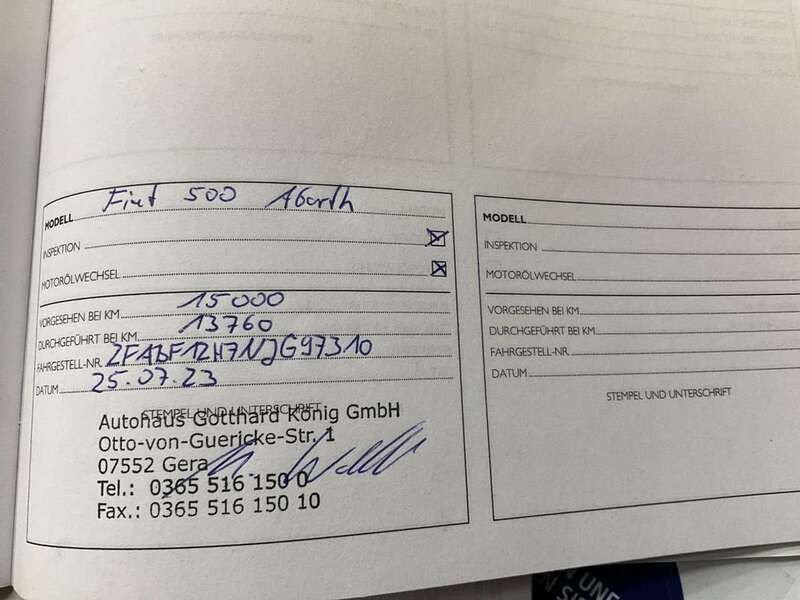 MODELL Fiat 500 Abarth
INSPEKTION
MOTORÖLWECHSEL
VORGESEHEN BEI KM 15000
DURCHGEFÜHRT BEI KM 13760
FAHRGESTELL-NR. ZFABF12H7NJG97310
DATUM 25.07.23
STEMPEL UND UNTERSCHRIFT
Autohaus Gotthard König GmbH
Otto-von-Guericke-Str. 1
07552 Gera
Tel.: 0365 516 150 0
Fax.: 0365 516 150 10
MODELL
INSPEKTION
MOTORÖLWECHSEL
VORGESEHEN BEI KM
DURCHGEFÜHRT BEI KM
FAHRGESTELL-NR.
DATUM
STEMPEL UND UNTERSCHRIFT